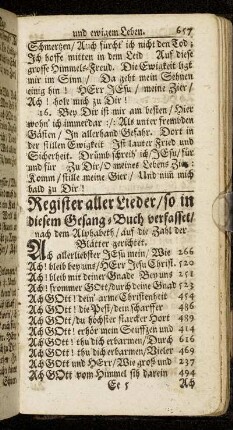 und ewigem Leben. 657
Schmertzen / Auch fürcht' ich nicht den Tod;
Ich hoffe mitten in dem Leid Auf diese
grosse Himmels-Freud. Die Ewigkeit ligt
mir im Sinn / Da geht mein Sehnen
einig hin! HErr JEsu / meine Zier /
Ach! hole mich zu Dir!
16. Bey Dir ist mir am besten / Hier
wohn' ich immerdar :/: Als unter fremden
Gästen / In allerhand Gefahr. Dort in
der stillen Ewigkeit Ist lauter Fried und
Sicherheit. Drümb schreib' ich / JEsu / für
und für Zu Dir / O meines Lebens Zier:
Komm / stille meine Gier / Und nim mich
bald zu Dir!
Register aller Lieder / so in
diesem Gesang-Buch verfasset /
nach dem Alphabeth / auf die Zahl der
Blätter gerichtet.
Ach allerliebster JEsu mein / Wie 266
Ach! bleib bey uns / HErr JEsu Christ. 520
Ach! bleib mit deiner Gnade Bey uns 251
Ach! frommer GOtt / durch deine Gnad 523
Ach GOtt! dein' arme Christenheit 454
Ach GOtt! die Pest / dein scharffer 486
Ach GOtt / du höchster starcker Hort 489
Ach GOtt! erhör mein Seuffzen und 414
Ach GOtt! thu dich erbarmen / Durch 616
Ach GOtt! thu dich erbarmen / Vieler 469
Ach GOtt und HErr / Wie groß und 237
Ach GOtt vom Himmel sih darein 494
Ee 5 Ach